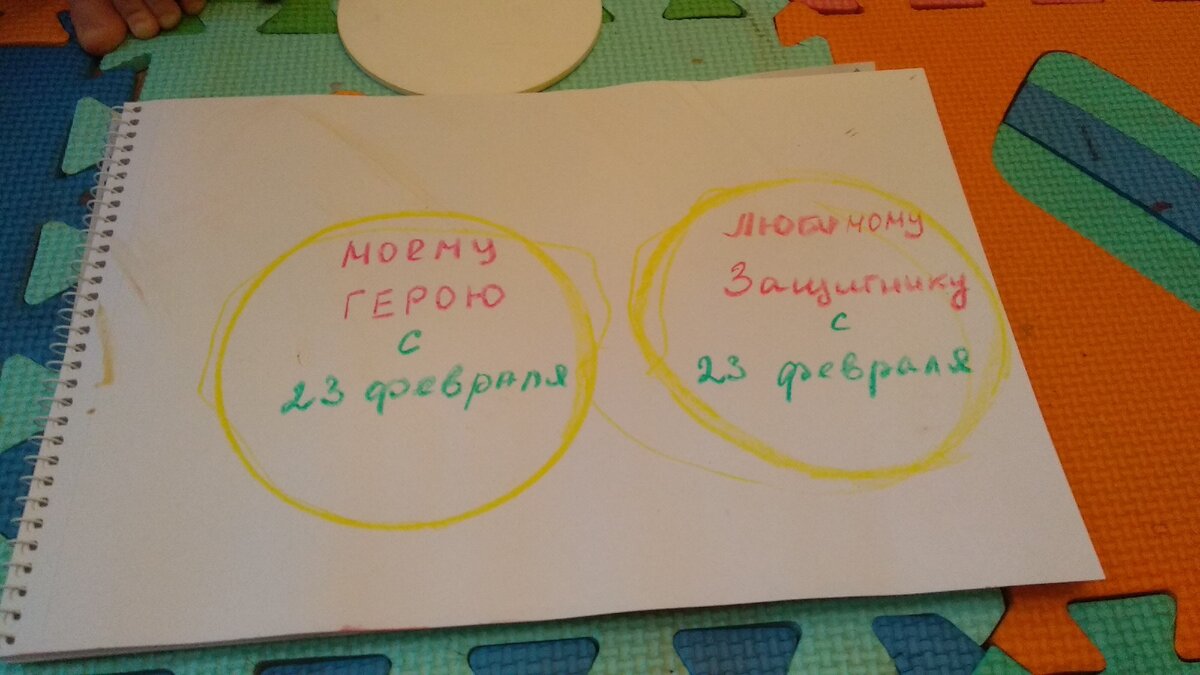 моему
ГЕРОЮ
с
23 февраля
Любимому
Защитнику
с
23 февраля